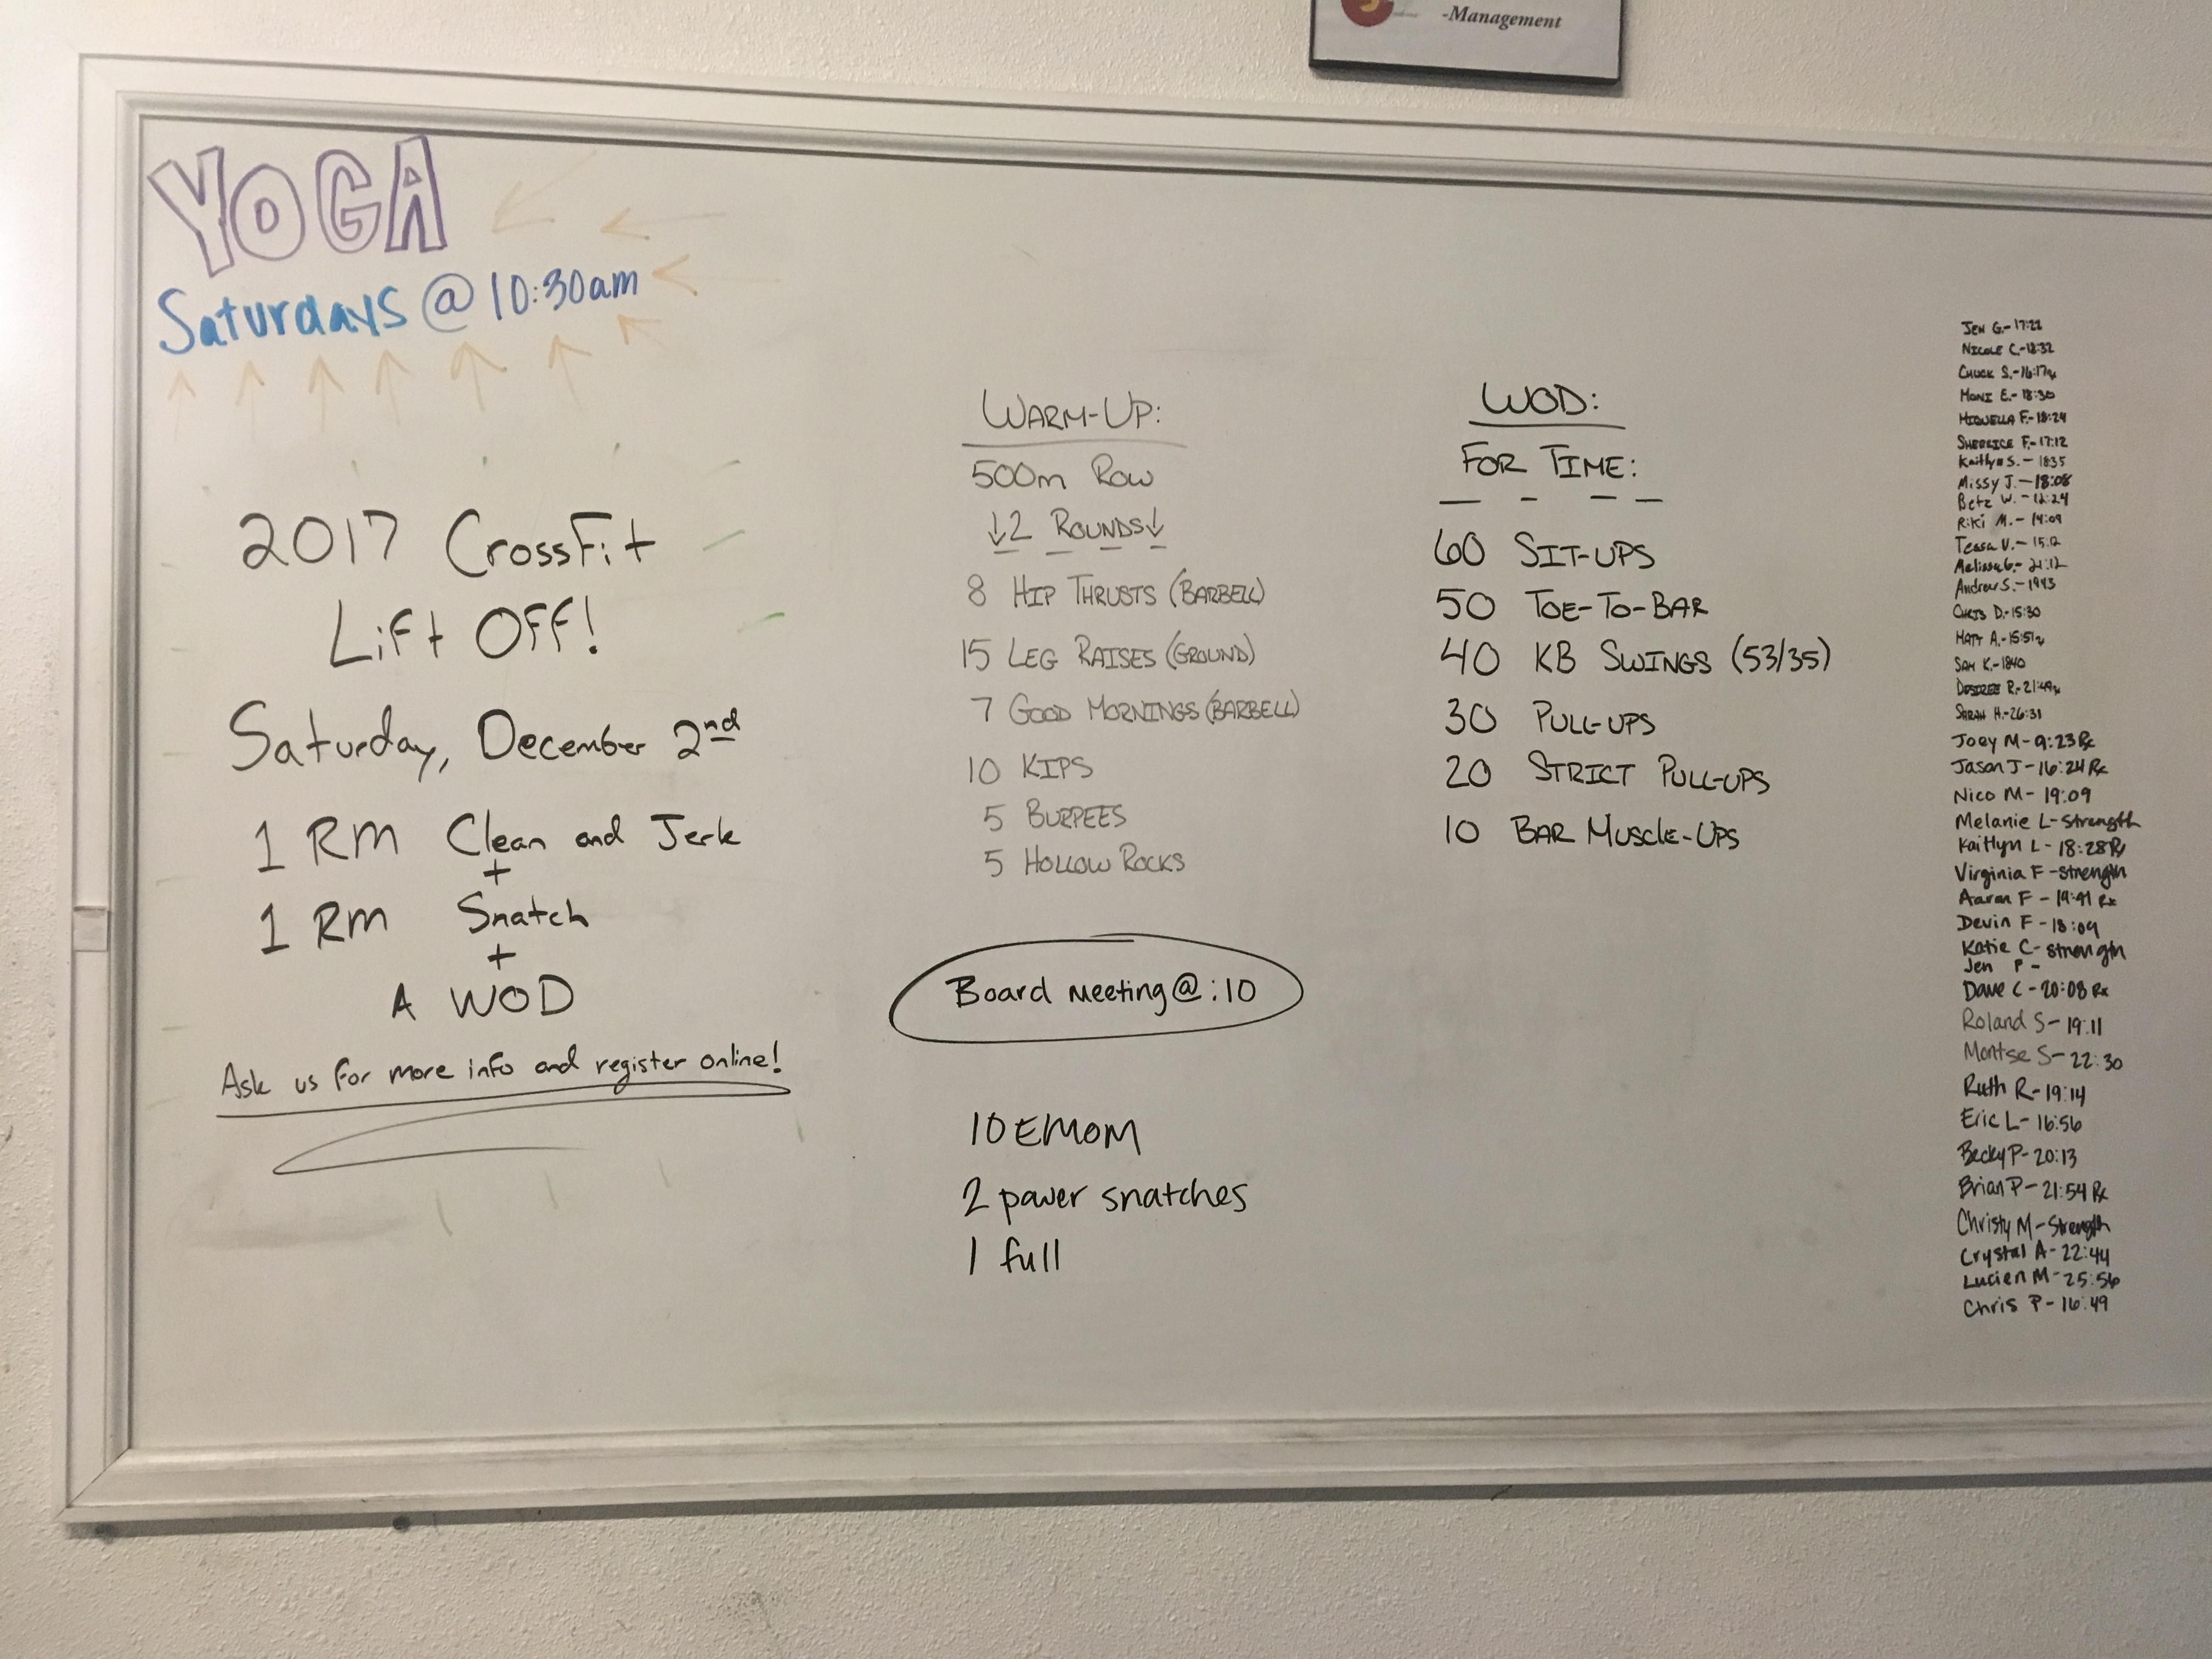 -Management
YOGA
Saturdays @ 10:30am
2017 CrossFit
Lift Off!
Saturday, December 2nd
1 RM Clean and Jerk
+
1 RM Snatch
+
A WOD
Ask us for more info and register online!
WARM-UP:
500m ROW
↓2 ROUNDS↓
8 HIP THRUSTS (BARBELL)
15 LEG RAISES (GROUND)
7 GOOD MORNINGS (BARBELL)
10 KIPS
5 BURPEES
5 HOLLOW ROCKS
Board Meeting @ :10
10 EMOM
2 power snatches
1 full
WOD:
FOR TIME:
60 SIT-UPS
50 TOE-TO-BAR
40 KB SWINGS (53/35)
30 PULL-UPS
20 STRICT PULL-UPS
10 BAR MUSCLE-UPS
JEN G.- 17:22
NICOLE C.-18:32
CHUCK S.-16:17Rx
MONI E.- 18:30
MIQUELLA F.- 18:24
F.- 17:12
Kaitlyn S. - 1835
Missy J. - 18:08
Betz W. - 12:24
Riki M. - 14:09
Tessa V. -
Melissa G.- 21:12
Andrew S. - 1943
CHRIS D.-15:30
MATT A.-15:51Rx
SAM K.-1840
DESIREE R.-21:49Rx
SARAH H.-26:31
Joey M - 9:23 Rx
Jason J - 16:24 Rx
Nico M - 19:09
Melanie L - Strength
Kaitlyn L - 18:28 Rx
Virginia F - strength
Aaron F - 19:41 Rx
Devin F - 18:09
Katie C - strength
Jen P -
Dave C - 20:08 Rx
Roland S - 19:11
Montse S - 22:30
Ruth R - 19:14
Eric L - 16:56
Becky P - 20:13
Brian P - 21:54 Rx
Christy M - Strength
Crystal A - 22:44
Lucien M - 25:56
Chris P - 16:49